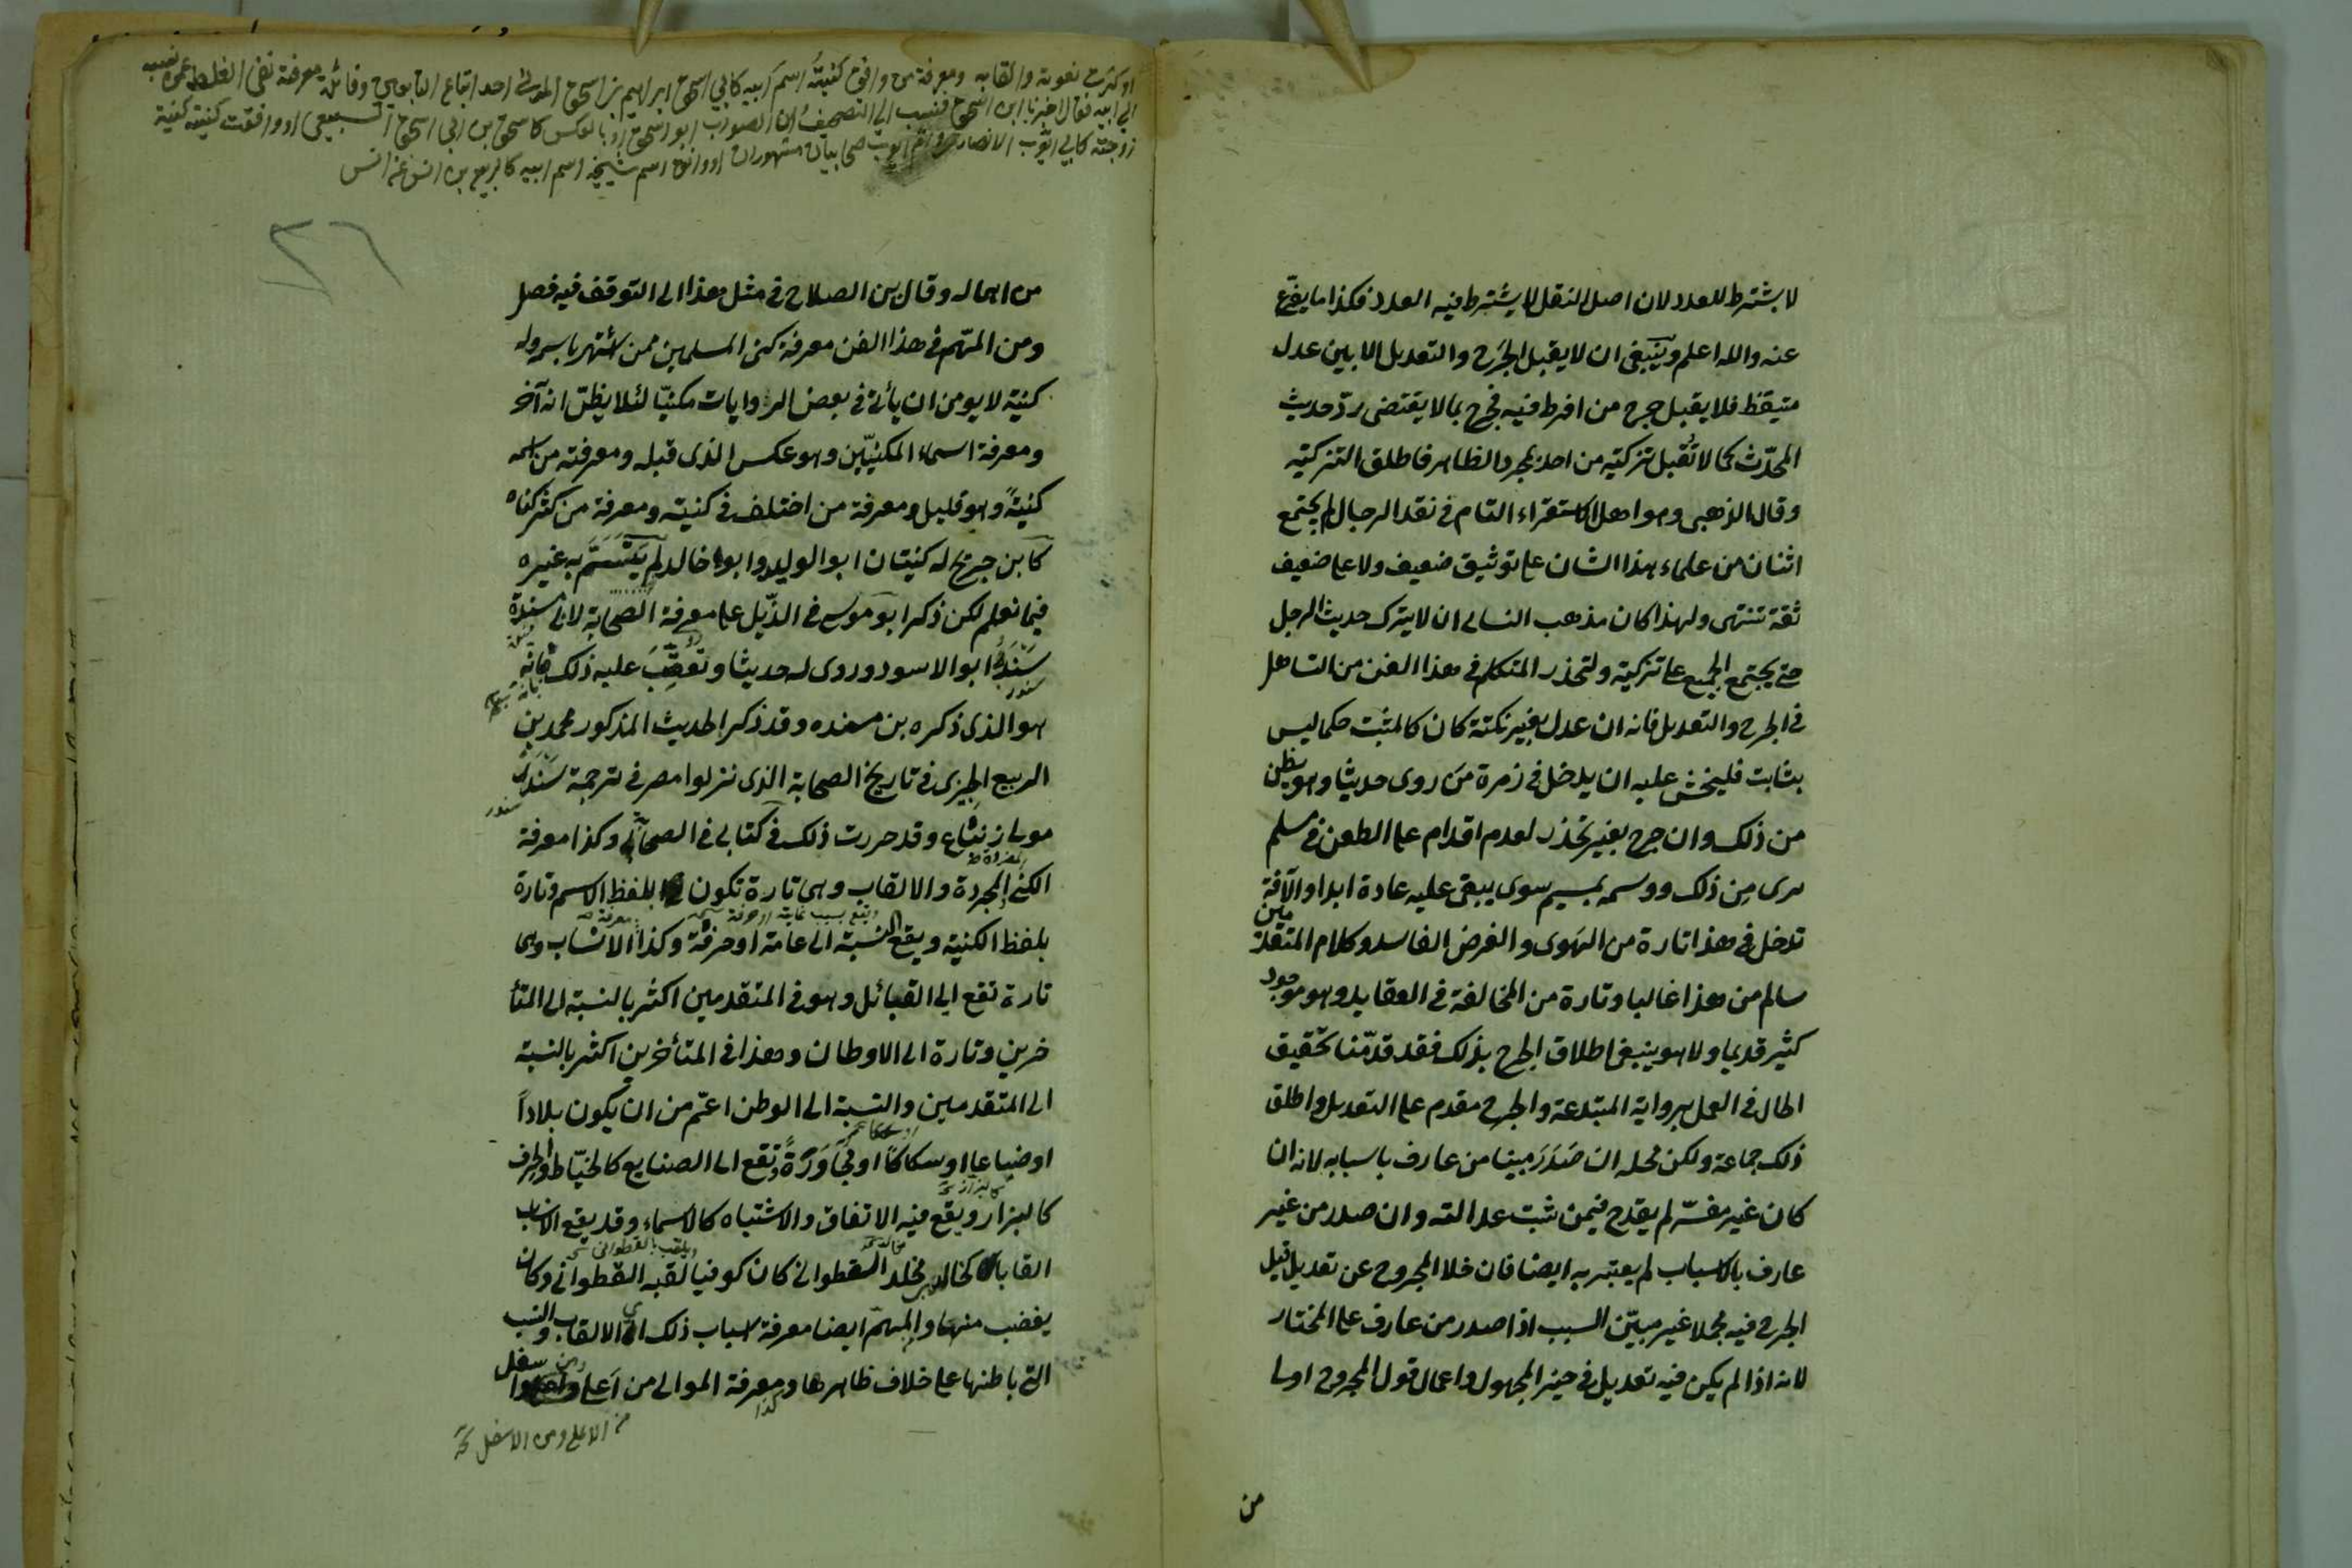 لا يشترط العدد لان اصل النقل لا يشترط فيه العدد فكذا ما يفرع
عنه والله اعلم وينبغى ان لا يقبل الجرح والتعديل الا بين عدل
متيقظ فلا يقبل جرح من افرط فيه فجرح بما لا يقتضى ردّ حديث
المحدّث كما لا تُقبل تزكيته من اخذ بمجرد الظاهر فاطلق التزكية
وقال الذهبى وهو اهل الاستقراء التام فى نقد الرجال لم يجتمع
اثنان من علماء هذا الشان على توثيق ضعيف ولا على ضعيف
ثقة تنتهى ولهذا كان مذهب النسائى ان لا يترك حديث الرجل
حتى يجتمع الجميع على تركه وليحذر المتكلم فى هذا الفن من التساهل
فى الجرح والتعديل فانه ان عدل بغير نكتة كان كالمثبت حكما ليس
بثابت فليخش عليه ان يدخل فى زمرة من روى حديثا وهو يظن
من ذلك وان جرح بغير تحذر لعدم اقدام على الطعن فى مسلم
برى مِن ذلك ووسمه بميسم سوى يبقى عليه عادة ابدا والآفة
تدخل فى هذا تارة من الهوى والغرض الفاسد وكلام المتقدمين
سالم من هذا غالبا وتارة من المخالفة فى العقايد وهو موجود
كثير قديما ولا هو ينبغى اطلاق الجرح بذلك فقد قدّمنا تحقيق
الحال فى العمل برواية المبتدعة والجرح مقدم على التعديل واطلق
ذلك جماعة ولكن محله ان صَدَرَ مبينا من عارف باسبابه لانه ان
كان غير مفسّر لم يقدح فيمن ثبت عدالته وان صدر من غير
عارف بالاسباب لم يعتبر به ايضا فان خلا المجروح عن تعديل قبل
الجرح فيه مجملا غير مبيّن السبب اذا صدر من عارف على المختار
لانه اذا لم يكن فيه تعديل فى حيز المجهول واعمال قول المجروح اولى
من
او كثرت نعوته والقابه ومعرفة من وافق كنيتُه اسمَ ابيه كابي اسحق ابراهيم بن اسحق المدنى احد اتباع التابعين وفائدته معرفة نفى الغلط عمن نسبه
الى ابيه فقال اخبرنا ابن اسحق فنسب الى التصحيف وان الصواب ابو اسحق او بالعكس كاسحق بن ابى اسحق السبيعى او وافقت كنيته كنية
زوجته كابى ايّوب الانصارى وامّ ايوب صحابيان مشهوران او وافق اسم شيخه اسم ابيه كالربيع بن انس عن انس
٢٦
من اهماله وقال بن الصلاح فى مثل هذا الى التوقف فيه فصل
ومن المهّم فى هذا الفن معرفة كنى المسلمين ممن اشتهر باسمه وله
كنية لا يومن ان ياتى فى بعض الروايات مكنيّا لئلا يظنّ انه آخر
ومعرفة اسماء المكنيّين وهو عكس الذى قبله ومعرفته من اسمه
كنيتهً وهو قليل ومعرفة من اختلف فى كنيته ومعرفة من كثر كناه
كابن جريج له كنيتان ابو الوليد وابو خالد لم يَتَسَمَّ به غيره
فيما نعلم لكن ذكر ابو موسى فى الذّيل على معرفة الصحابة لابى مندة
سَنْدَرُ ابو الاسود وروى له حديثا وتُعُقِّبَ عليه ذلك فانه
سندر
هو الذى ذكره بن منده وقد ذكر الحديث المذكور محمد بن
الربيع الجيزى فى تاريخ الصحابة الذى نزلوا مصر فى ترجمة سَنْدَر
مولى زنباع وقد حررت ذلك فى كتابى فى الصحابة وكذا معرفة
الكُنى المجردة والالقاب وهى تارة تكون بلفظ الاسم وتارة
بلفظ الكنية ويقع النسبة الى عامة او حرفة وكذا الانساب وهى
تارة تقع الى القبائل وهو فى المتقدمين اكثر بالنسبة الى المتأ
خرين وتارة الى الاوطان وهذا فى المتأخرين اكثر بالنسبة
الى المتقدمين والنسبة الى الوطن اعّم من ان يكون بلاداً
او ضياعا او سكاكا او مجَاوَرَةً وتقع الى الصنايع كالخيّاط والحرف
كالبزار ويقع فيه الاتفاق والاشتباه كالاسماء وقد يقع الانساب
القابا كخالد بن مخلد القطوانى كان كوفيا لقبه القطوانى وكان
يغضب منها والمهمّ ايضا معرفة اسباب ذلك اى الالقاب والنسب
التى باطنها على خلاف ظاهرها ومعرفة الموالى من اَعلى ومن سفل
من الاعلى ومن الاسفل نخة